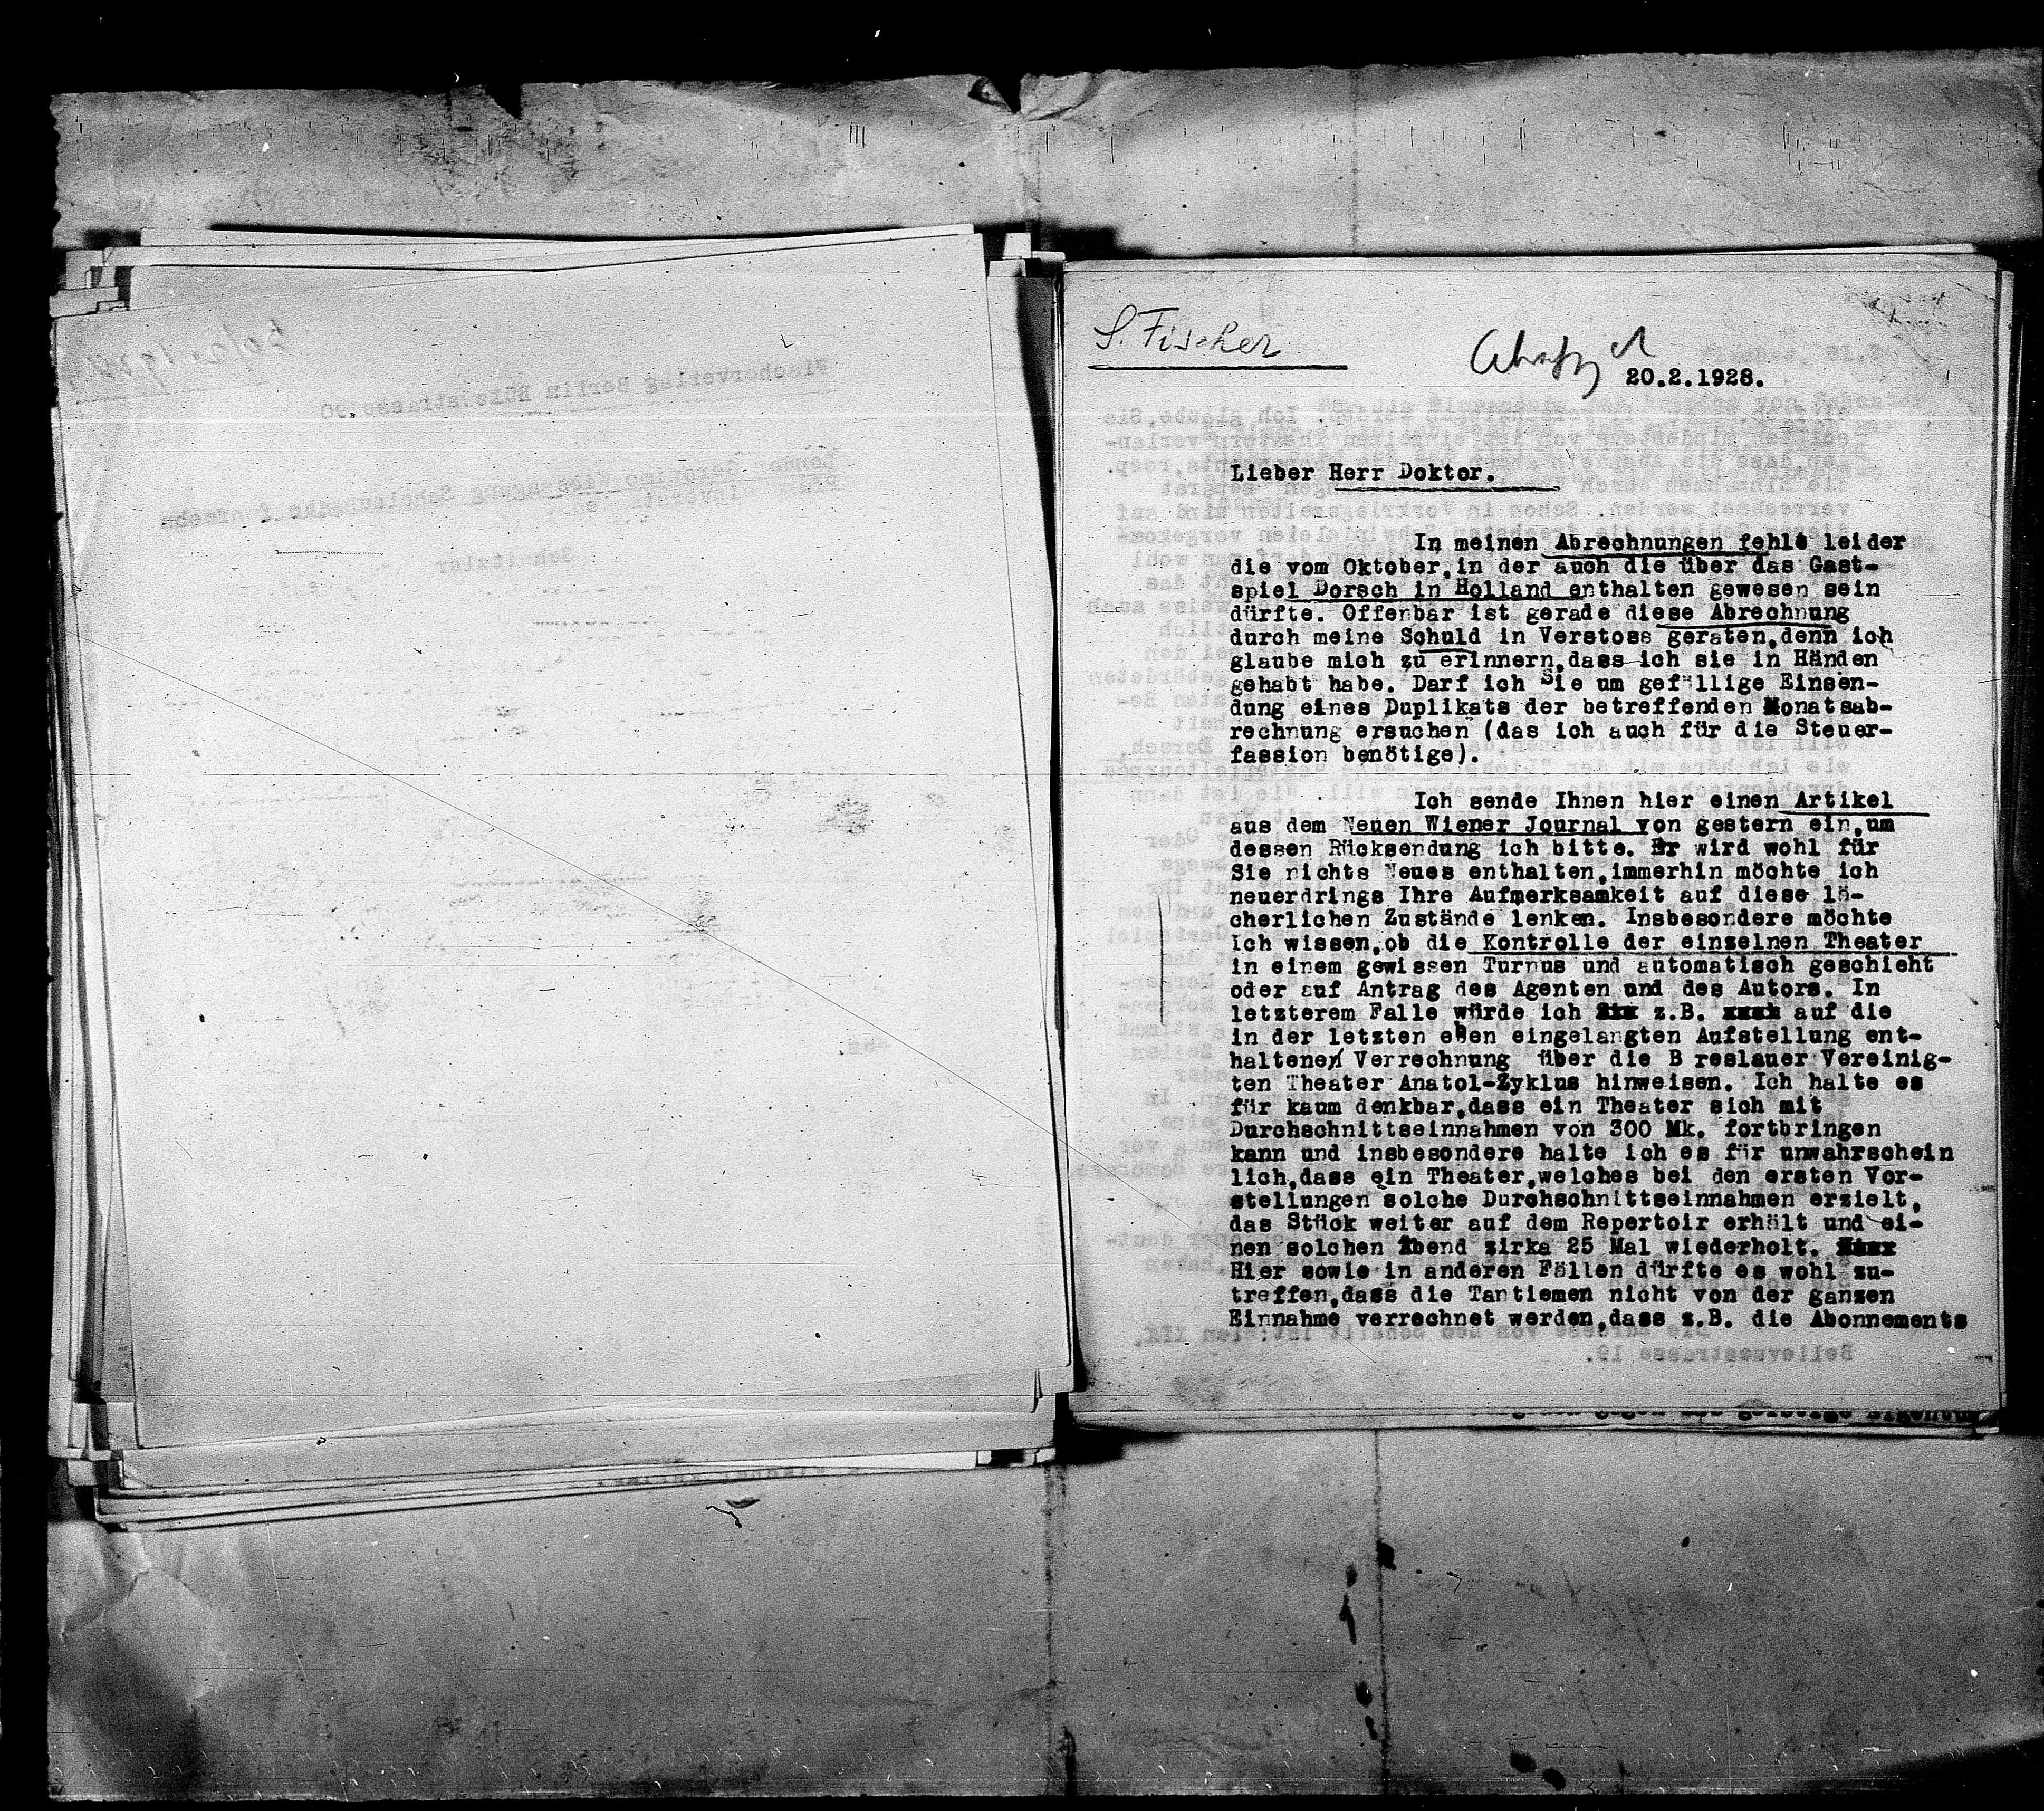 S. Fischer
20.2.1928.
Lieber Herr Doktor.
In meinen Abrechnungen fehlt leider
die vom Oktober, in der auch die über das Gast-
spiel Dorsch in Holland enthalten gewesen sein
dürfte. Offenbar ist gerade diese Abrechnung
durch meine Schuld in Verstoss geraten, denn ich
glaube mich zu erinnern, dass ich sie in Händen
gehabt habe. Darf ich Sie um gefällige Einsen-
dung eines Duplikats der betreffenden Monatsab-
rechnung ersuchen (das ich auch für die Steuer-
fassion benötige).
Ich sende Ihnen hier einen Artikel
aus dem Neuen Wiener Journal von gestern ein, um
dessen Rücksendung ich bitte. Er wird wohl für
Sie nichts Neues enthalten, immerhin möchte ich
neuerdrings Ihre Aufmerksamkeit auf diese lä-
cherlichen Zustände lenken. Insbesondere möchte
ich wissen, ob die Kontrolle der einzelnen Theater
in einem gewissen Turnus und automatisch geschieht
oder auf Antrag des Agenten und des Autors. In
letzterem Falle würde ich z.B. auf die
in der letzten eben eingelangten Aufstellung ent-
haltenen Verrechnung über die B reslauer Vereinig-
ten Theater Anatol-Zyklus hinweisen. Ich halte es
für kaum denkbar, dass ein Theater sich mit
Durchschnittseinnahmen von 300 Mk. fortbringen
kann und insbesondere halte ich es für unwahrschein
lich, dass ein Theater, welches bei den ersten Vor-
stellungen solche Durchschnittseinnahmen erzielt,
das Stück weiter auf dem Repertoir erhält und ei-
nen solchen Abend zirka 25 Mal wiederholt.
Hier sowie in anderen Fällen dürfte es wohl zu-
treffen, dass die Tantiemen nicht von der ganzen
Einnahme verrechnet werden, dass z.B. die Abonnements